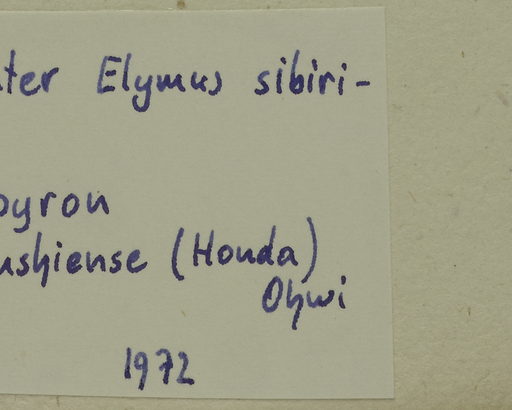 ter Elymus sibiri-
pyron
ushiense (Honda)
Ohwi
1972